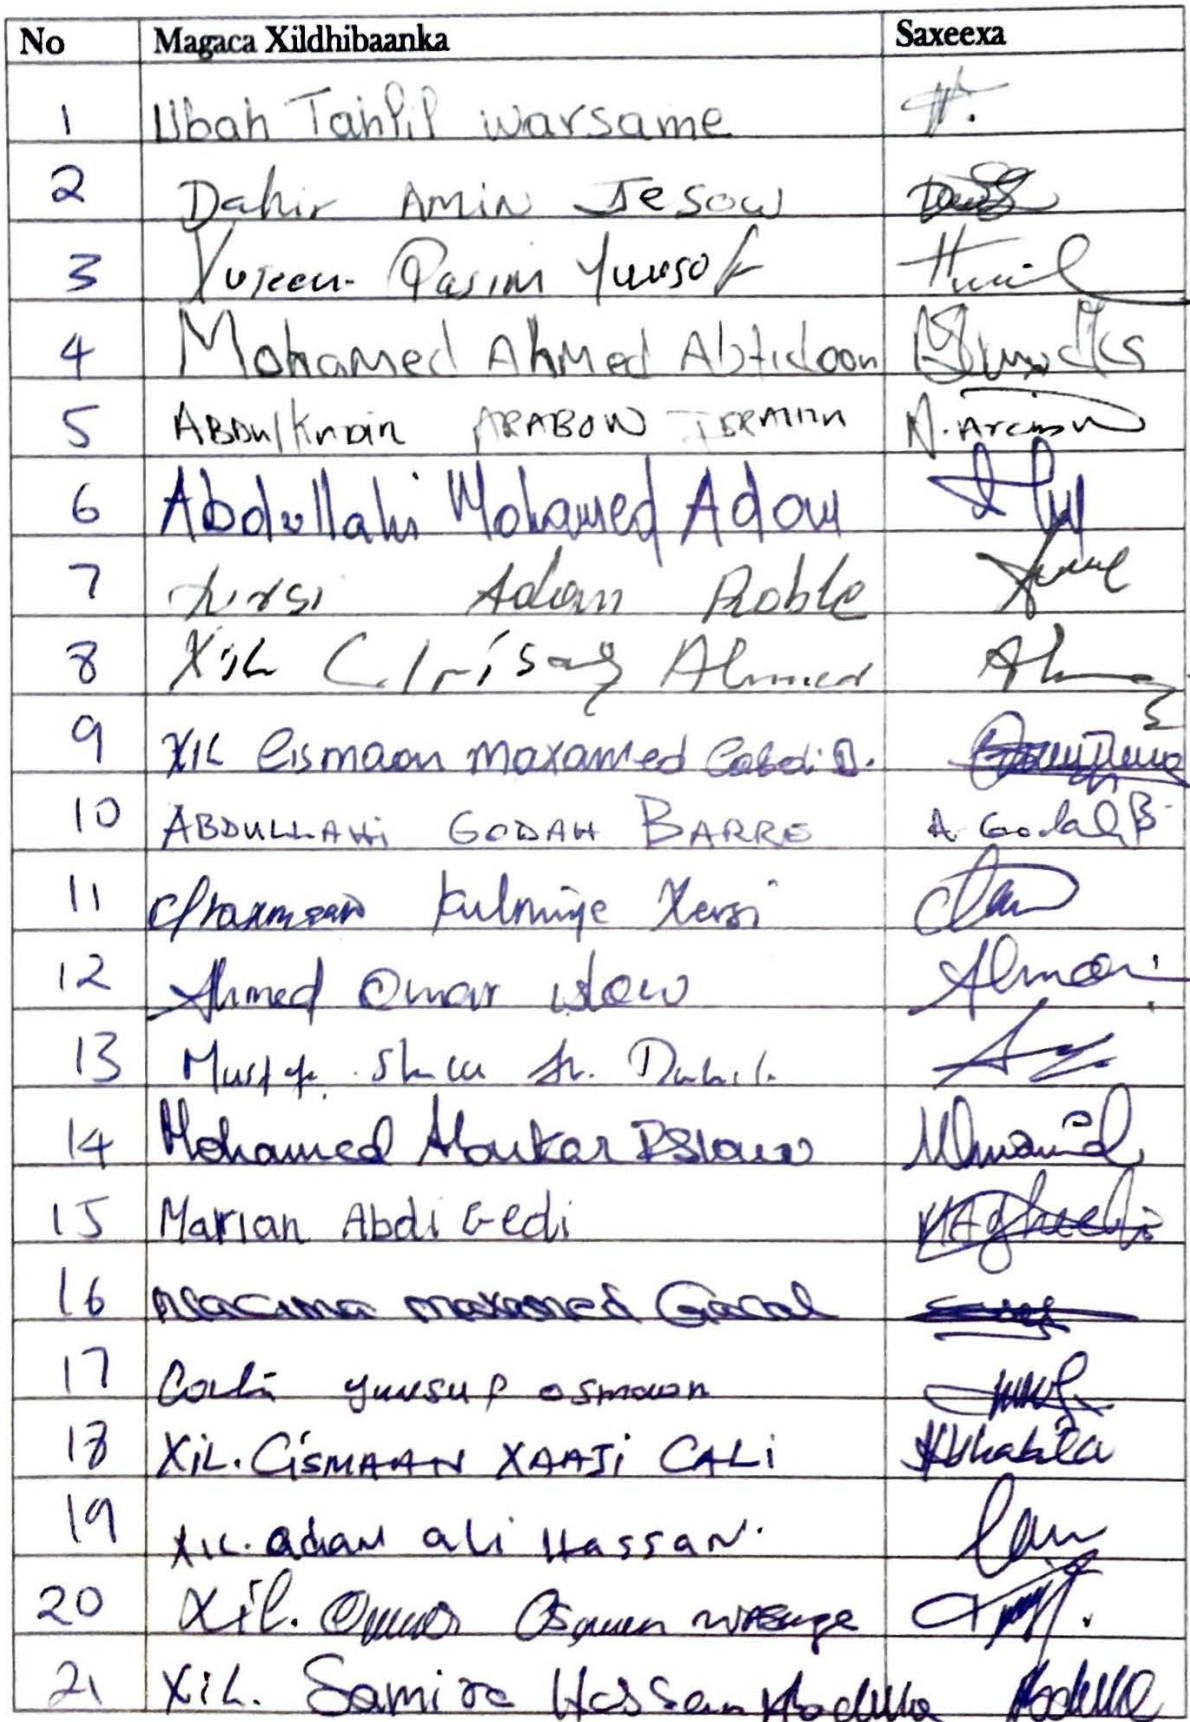 No Magaca Xildhibaanka Saxeexa
1 Ubah Tahlil warsame
2 Dahir AMIN JESOW
3 Xuseen Qasim Yuusof
4 Mohamed Ahmed Abtidoon
5 ARABOW
6 Abdullahi Mohamed Adow
7 Xirsi Adan Roble
8 XIL Ahmed
9 XIL Cismaan Maxamed Cabdi D.
10 ABDULLAHI GODAH BARRE A. Godah B
11 C/raxmaan Kulmiye Xersi
12 Ahmed Omar
13
14 Mohamed Abukar ISlaw
15 Marian Abdi Gedi
16 Nacima maxamed Gacal
17 yuusuf osmaan
18 XiL. CiSMAAN XAAJi CALi
19 XiL. adan ali Hassan.
20 Xil. Omar Osman
21 XiL. Samira Hassan Abdulla Abdulla